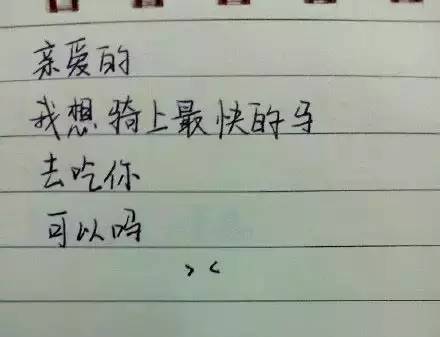 亲爱的
我想骑上最快的马
去吃你
可以吗
> <